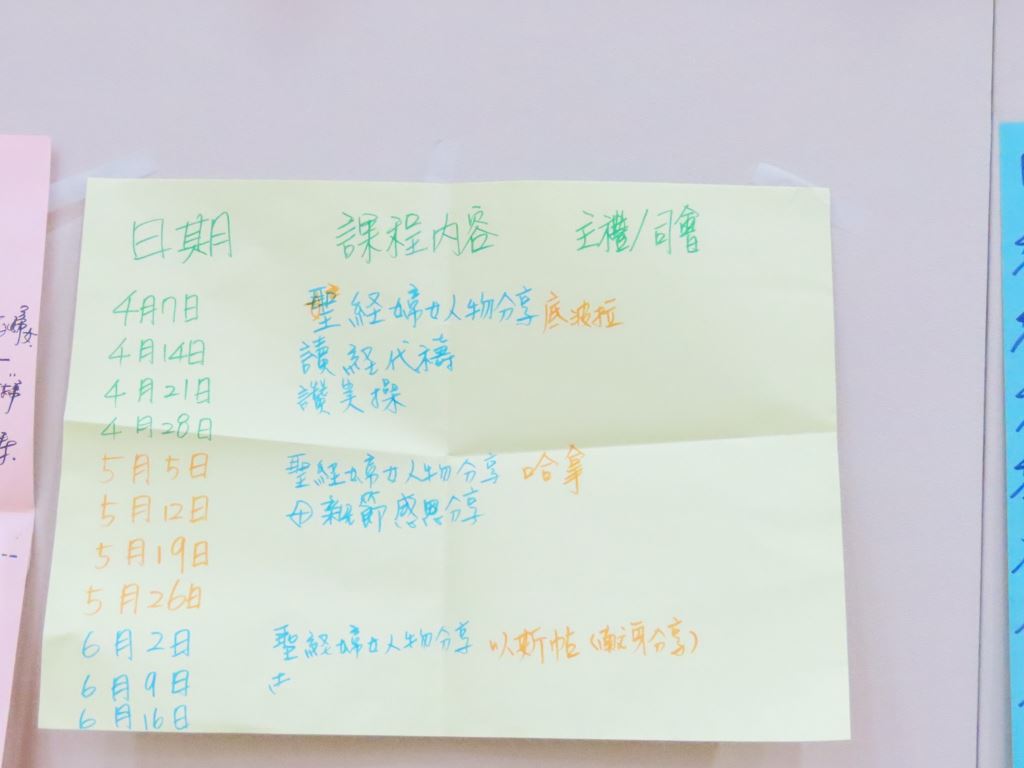 日期 課程內容 主禮/司會
4月7日 聖経婦女人物分享 底波拉
4月14日 讀経代禱
4月21日 讚美操
4月28日
5月5日 聖経婦女人物分享 哈拿
5月12日 母親節感恩分享
5月19日
5月26日
6月2日 聖経婦女人物分享 以斯帖 (分享)
6月9日
6月16日
婦女